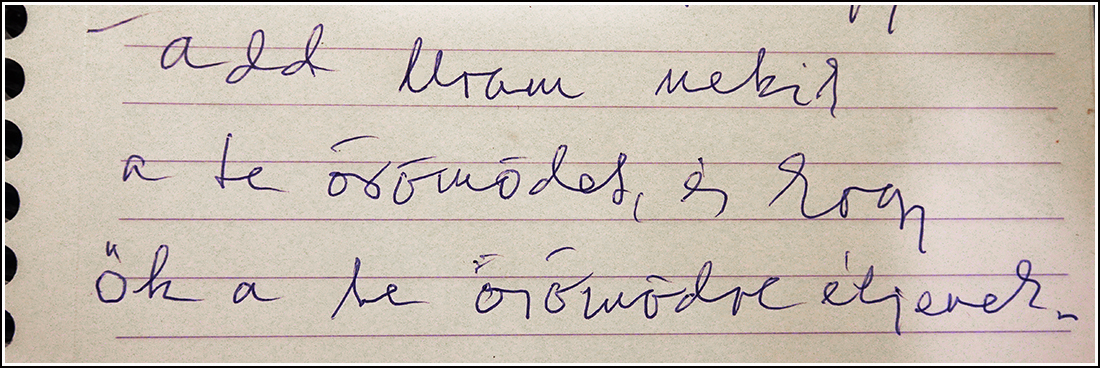 add Uram nekik
a te örömödet, és hogy
ők a te örömödre éljenek.